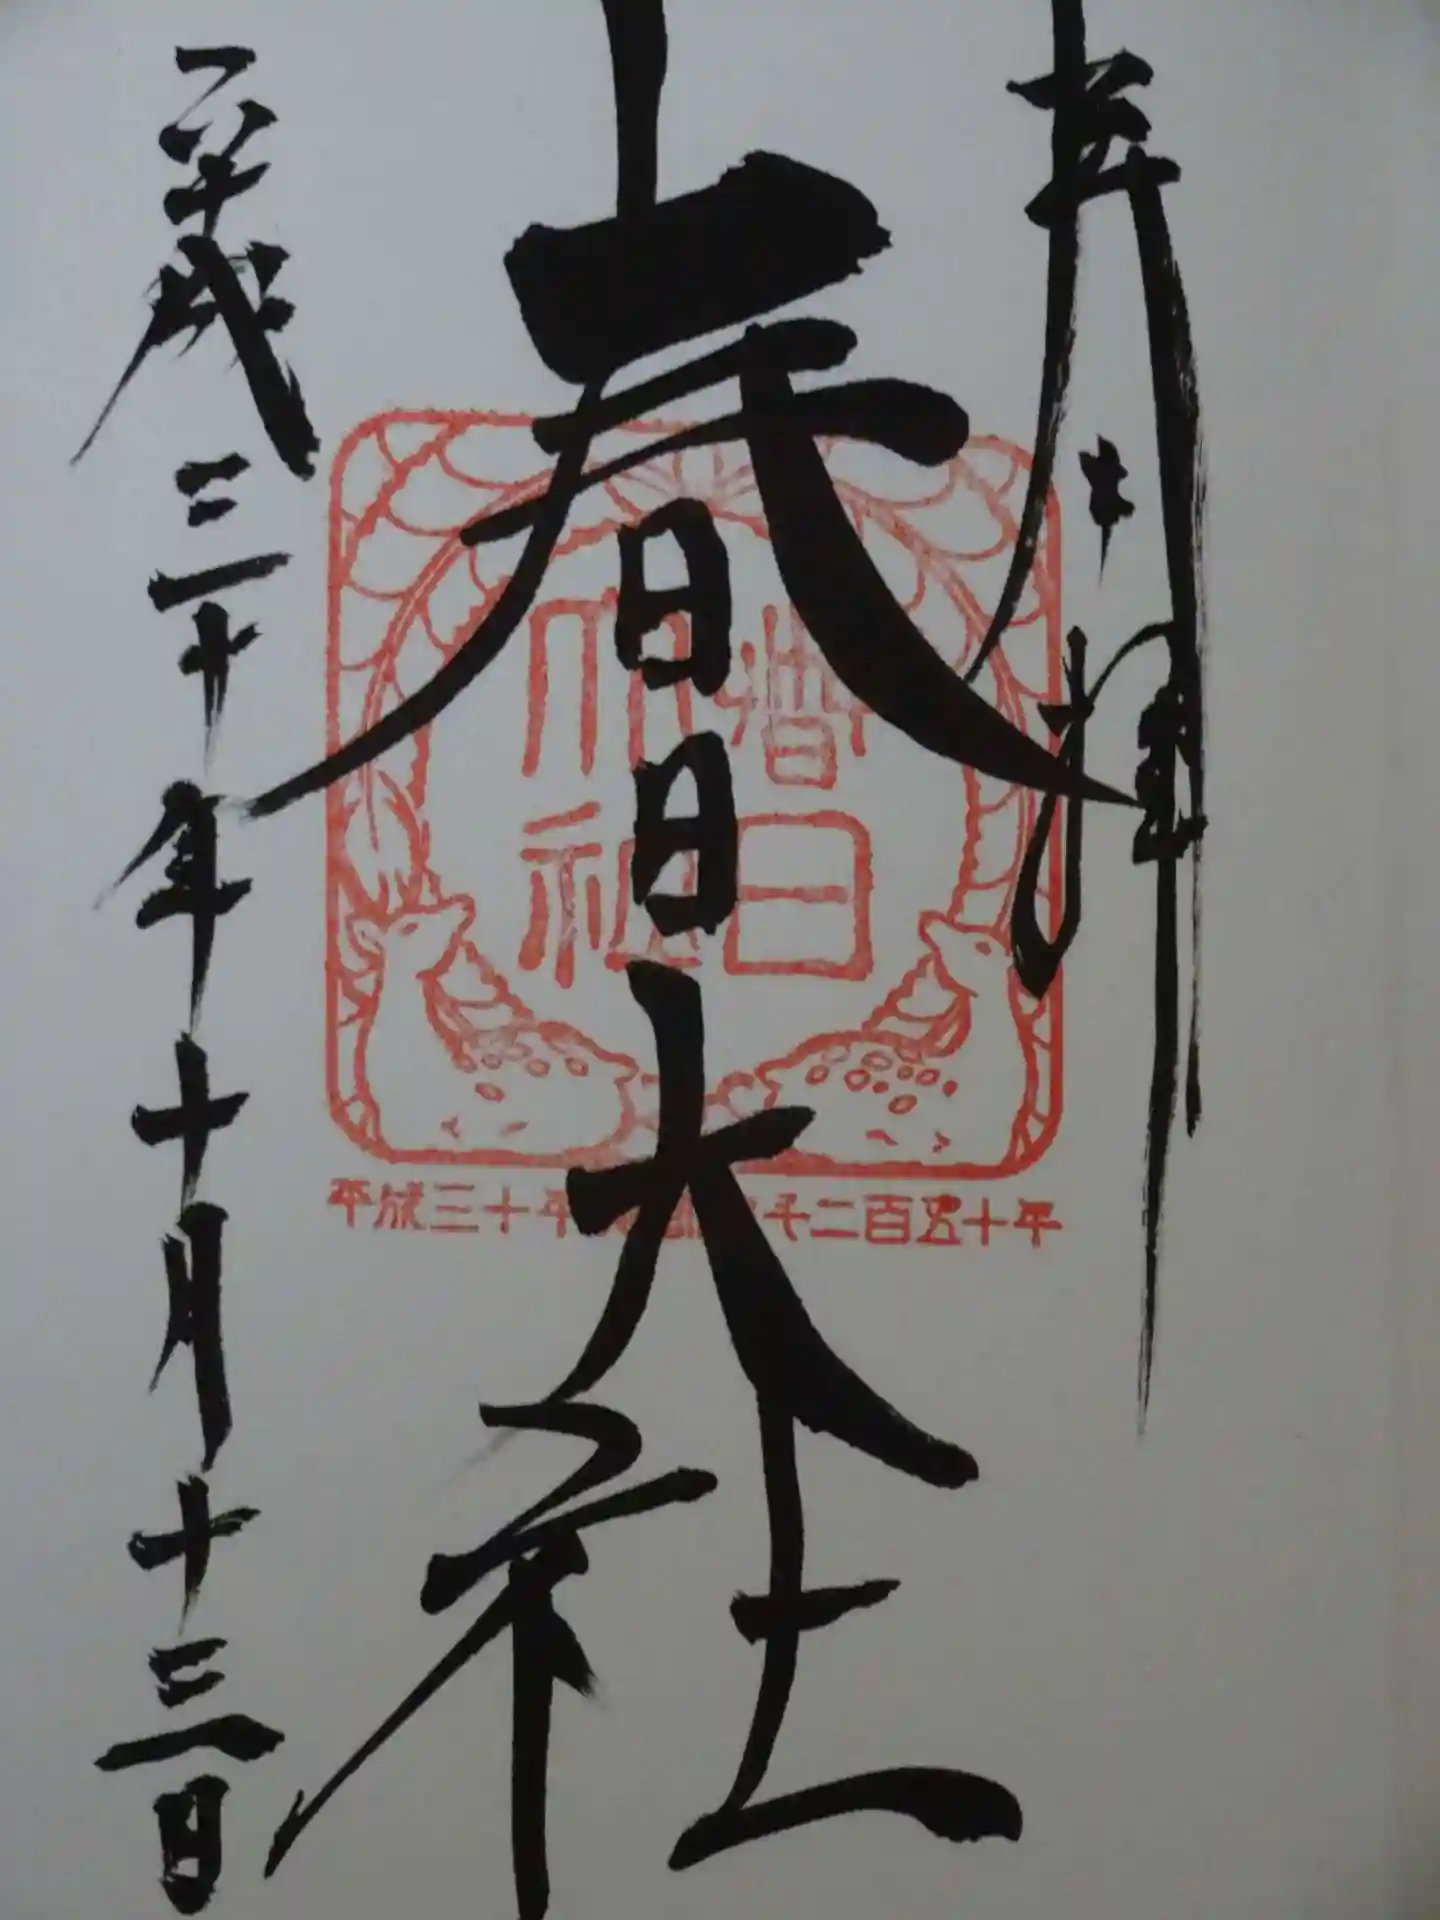 奉拝
春日大社
平成三十年十月十三日
春日
大社
平成三十年
千二百五十年